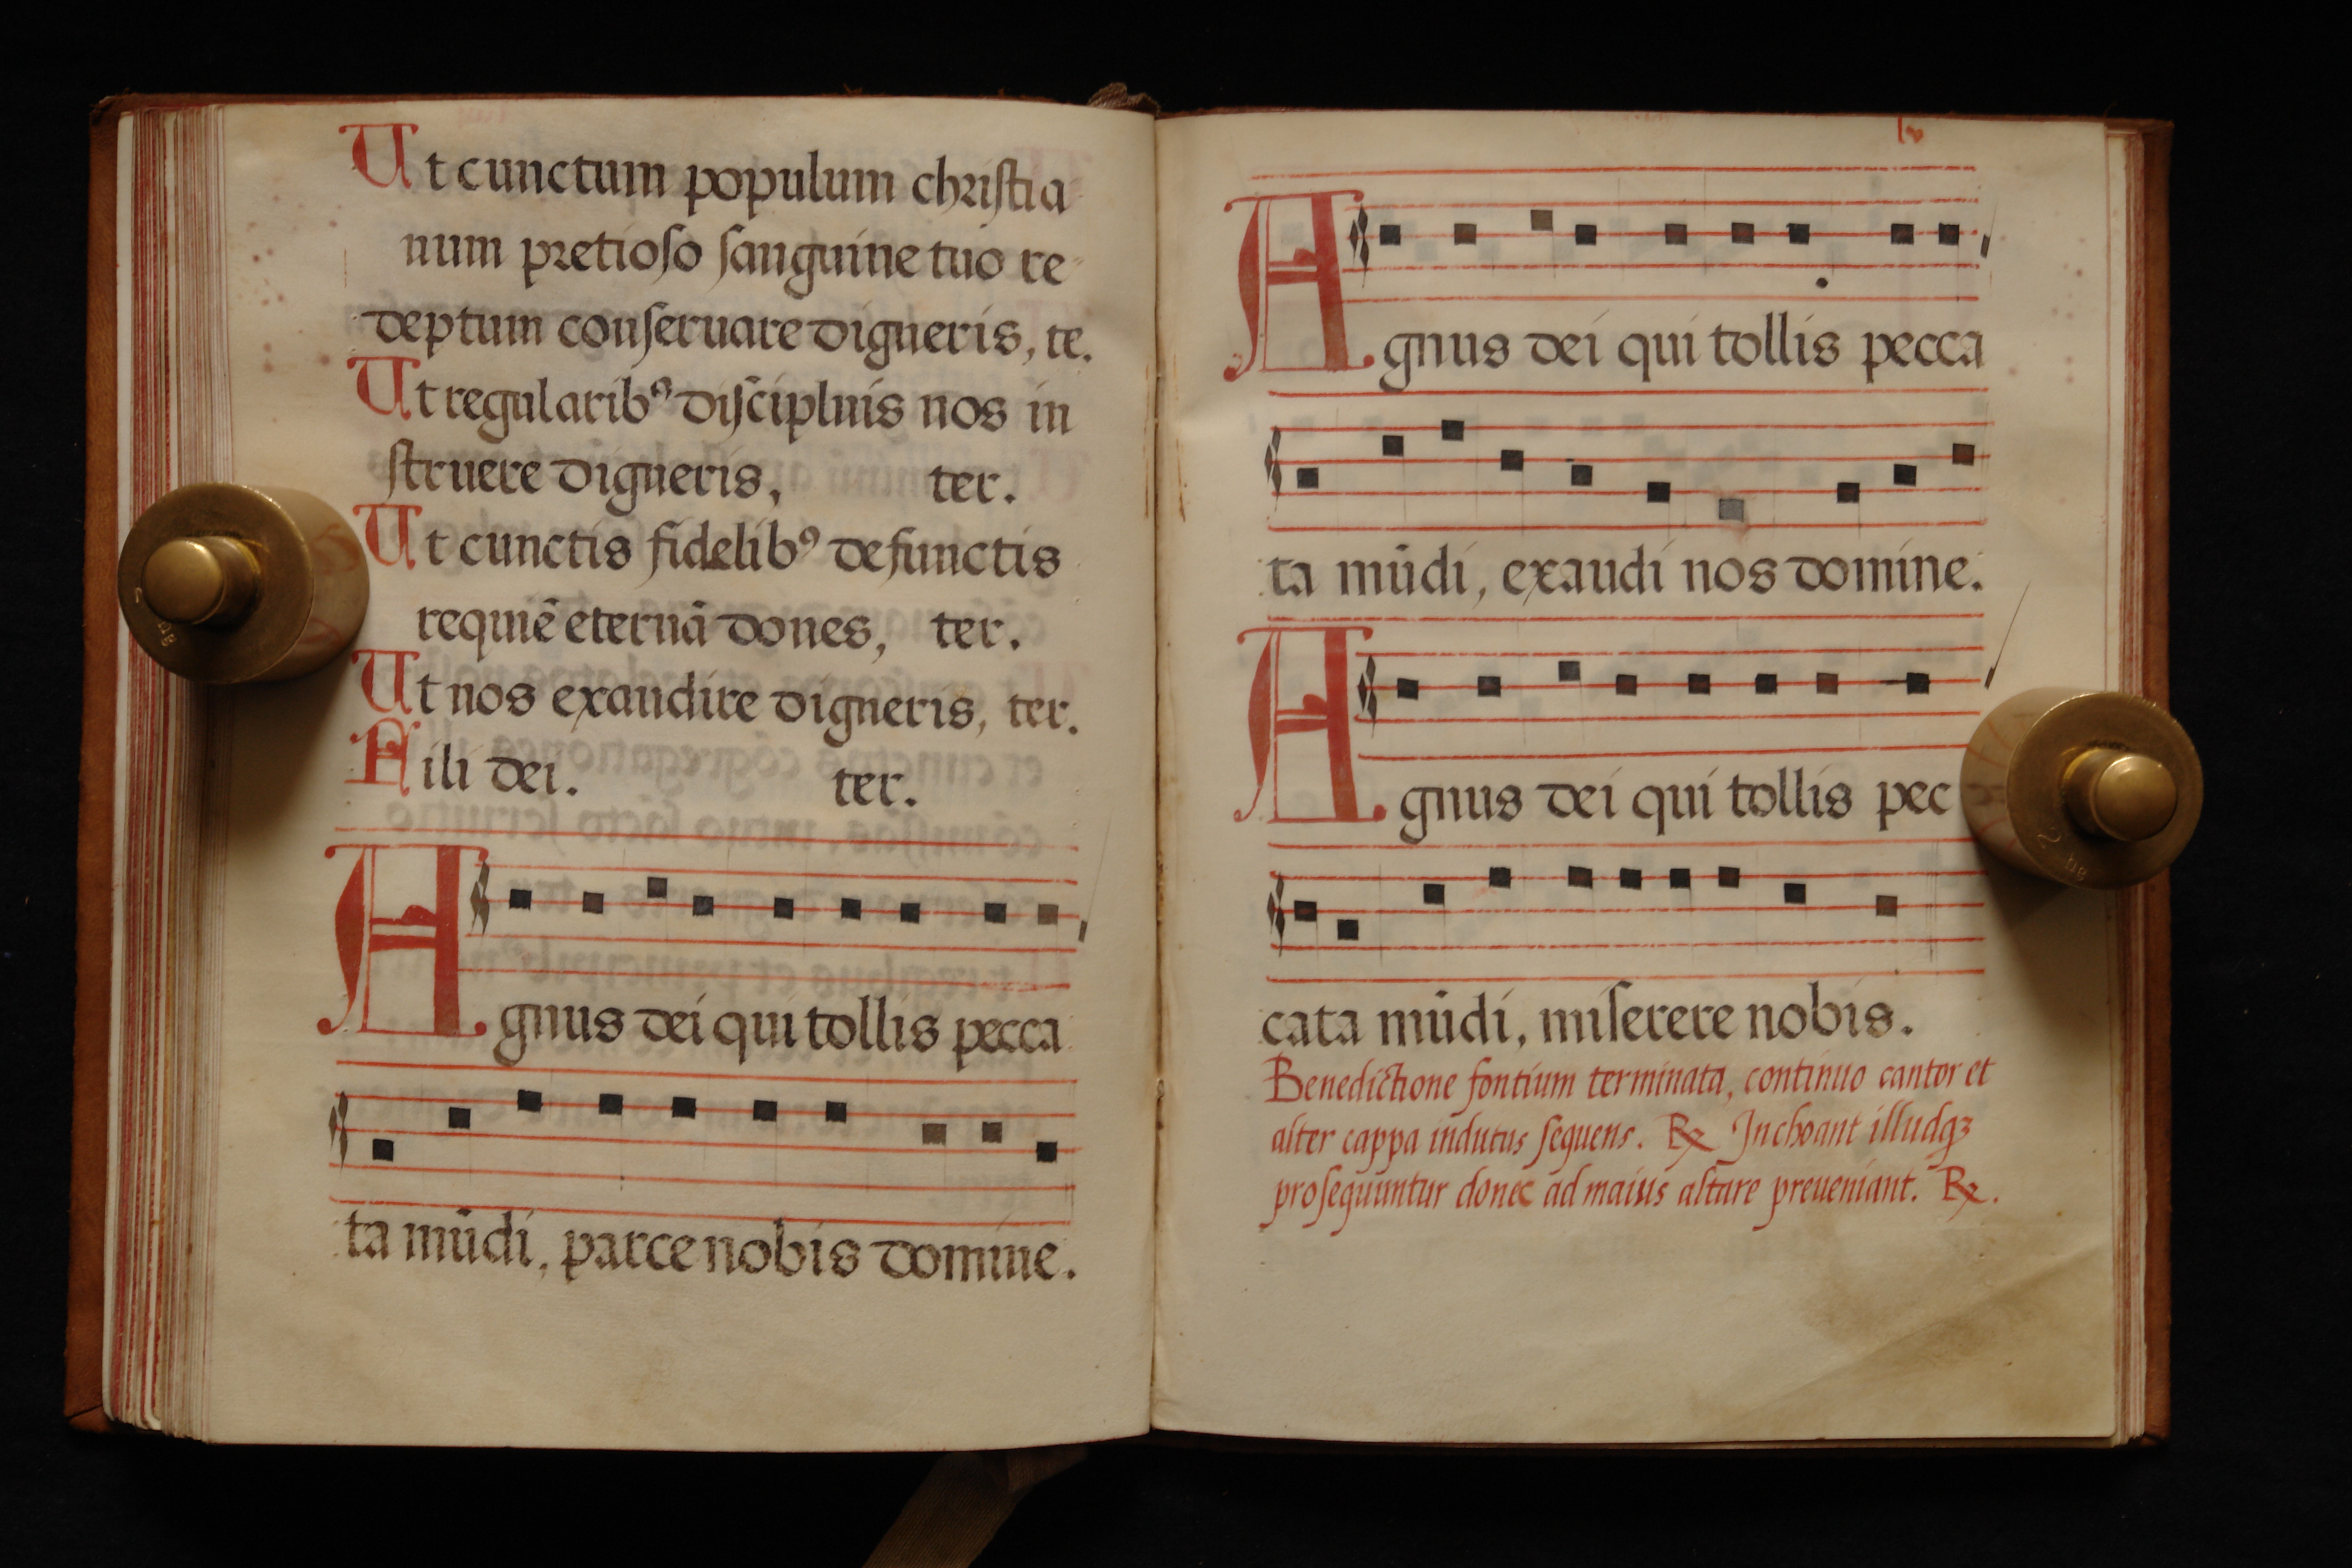 Ut cunctum populum chriſtia
num pretioſo ſanguine tuo re
deptum conſeruare digneris, te.
Ut regularibꝰ diſciplinis nos in
ſtruere digneris, ter.
Ut cunctis fidelibꝰ defunctis
requiē eternā dones, ter.
Ut nos exaudire digneris, ter.
Fili dei. ter.
Agnus dei qui tollis pecca
ta mūdi, parce nobis domine.
Agnus dei qui tollis pecca
ta mūdi, exaudi nos domine.
Agnus dei qui tollis pec
cata mūdi, miſerere nobis.
Benedictione fontium terminata, continuo cantor et
alter cappa indutus ſequens. ℞ Inchoant illudqꝫ
proſequuntur donec ad maius altare preueniant. ℞.